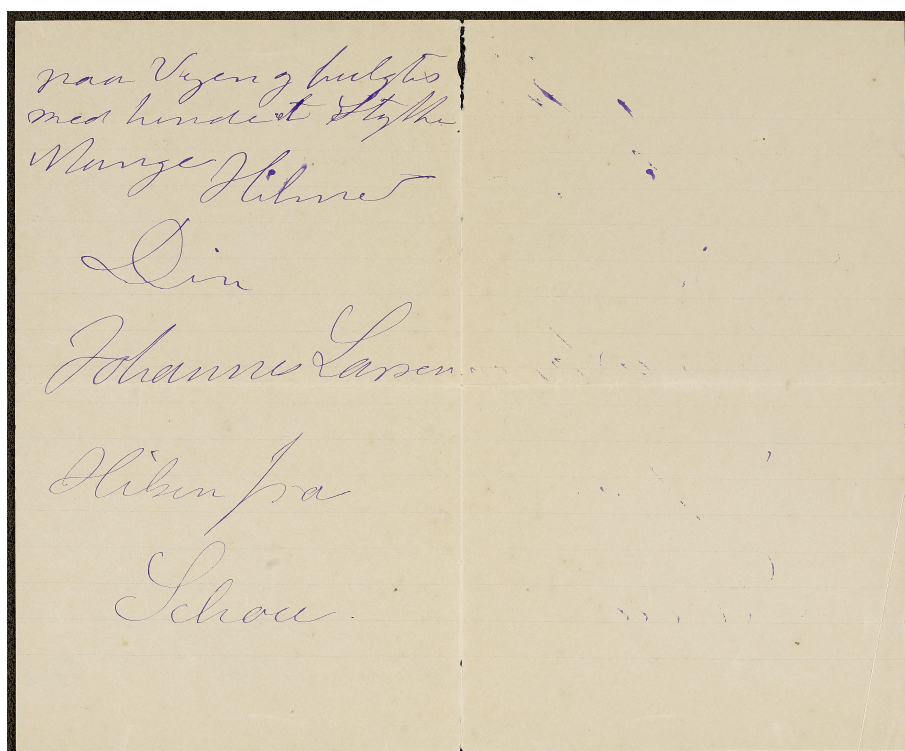 paa Vejen og fulgtes
med hundert Stykke
Mange Hilsner
Din
Johannes Larsen
Hilsen fra
Schou.